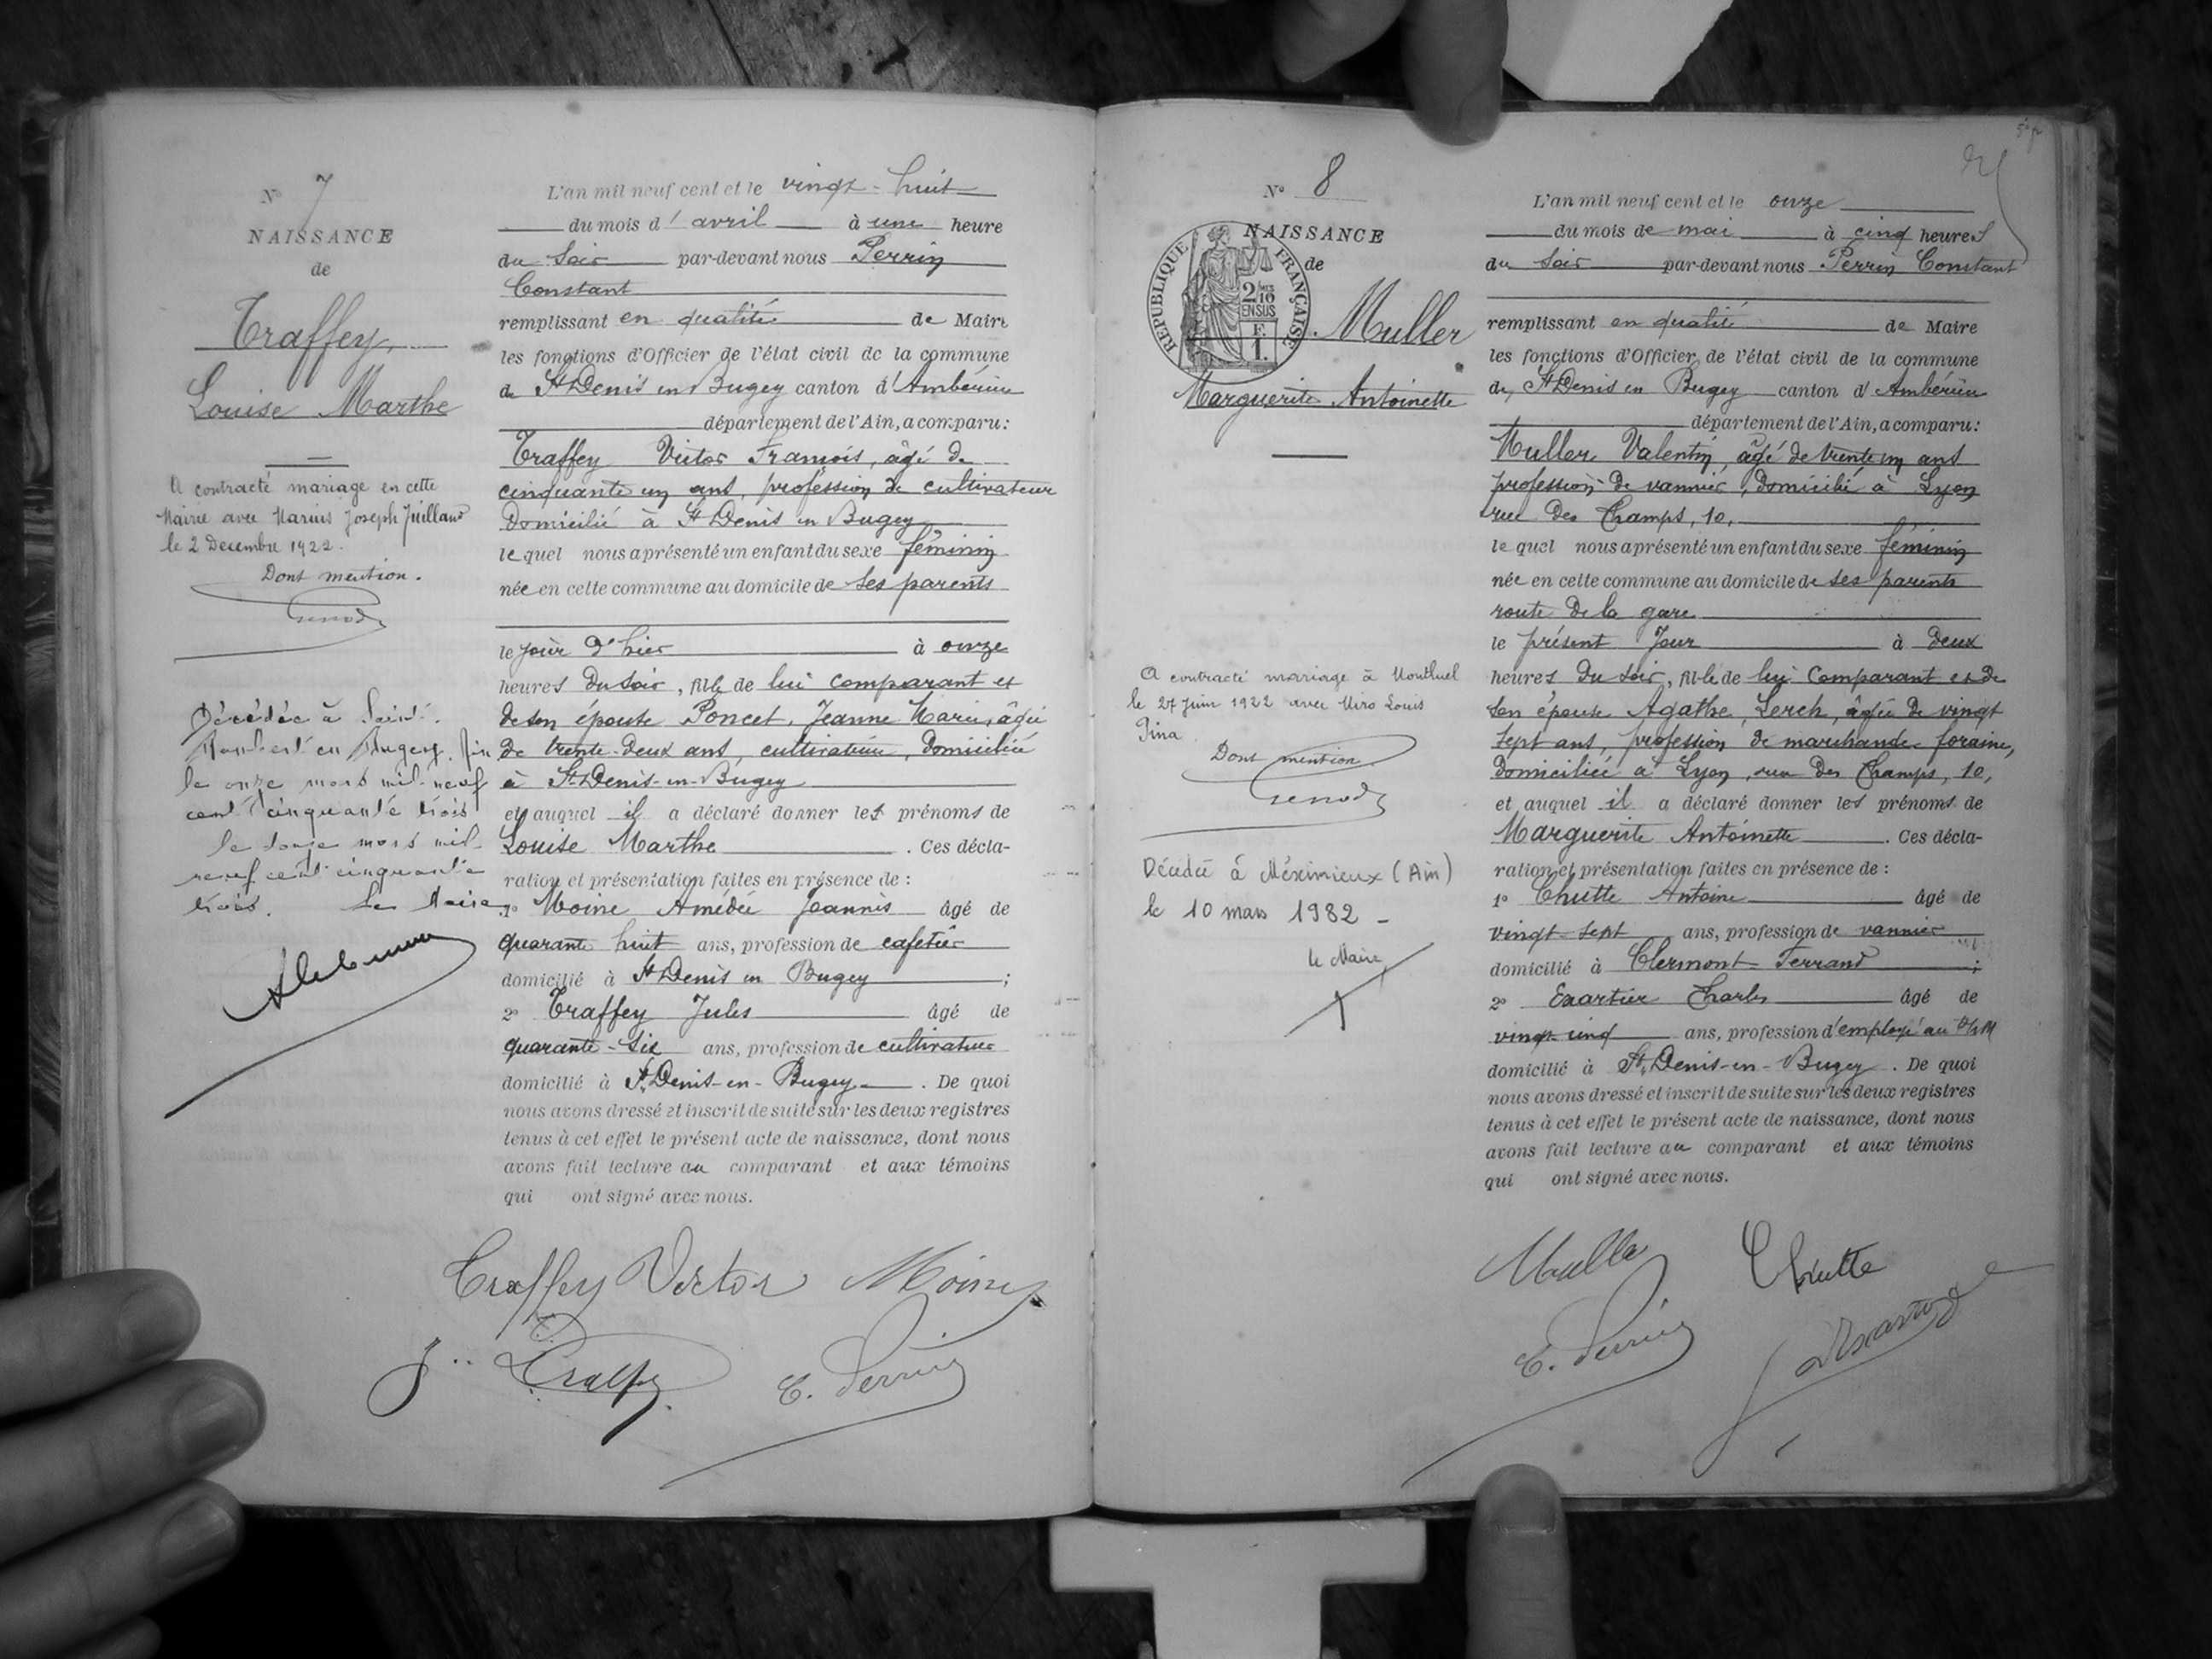 N° 7
NAISSANCE
de
Traffey,
Louise Marthe
A contracté mariage en cette
Mairie avec Marius Joseph Juilland
le 2 Decembre 1922.
Dont mention.
Décédée à Saint-
Rambert en Bugey. Ain
le onze mars mil neuf
cent cinquante trois
le douze mars mil
neuf cent cinquante
trois. Le Maire
L'an mil neuf cent et le vingt-huit
du mois d'avril à une heure
du soir par-devant nous Perrin
Constant
remplissant en qualité de Maire
les fonctions d'Officier de l'état civil de la commune
de St Denis en Bugey canton d'Ambérieu
département de l'Ain, a comparu:
Traffey Victor François, âgé de
cinquante un ans, profession de cultivateur
domicilié à St Denis en Bugey
lequel nous a présenté un enfant du sexe féminin
née en cette commune au domicile de ses parents
le jour d'hier à onze
heures du soir, fille de lui comparant et
de son épouse Poncet, Jeanne Marie, âgée
de trente-deux ans, cultivatrice, domiciliée
à St Denis-en-Bugey
et auquel il a déclaré donner les prénoms de
Louise Marthe. Ces décla-
ration et présentation faites en présence de :
1° Moine Amédée Joannès âgé de
quarante huit ans, profession de cafetier
domicilié à St Denis en Bugey ;
2° Traffey Jules âgé de
quarante-six ans, profession de cultivateur
domicilié à St Denis-en-Bugey. De quoi
nous avons dressé et inscrit de suite sur les deux registres
tenus à cet effet le présent acte de naissance, dont nous
avons fait lecture au comparant et aux témoins
qui ont signé avec nous.
Traffey Victor Moine
C. Perrin
N° 8
NAISSANCE
de
REPUBLIQUE FRANÇAISE
2/10 EN SUS
F. 1.
Muller
Marguerite Antoinette
A contracté mariage à Montluel
le 27 Juin 1922 avec Miro Louis
Pina
Dont mention.
Décédée à Méximieux (Ain)
le 10 mars 1982 -
Le Maire,
L'an mil neuf cent et le onze
du mois de mai à cinq heures
du soir par-devant nous Perrin Constant
remplissant en qualité de Maire
les fonctions d'Officier de l'état civil de la commune
de St Denis en Bugey canton d'Ambérieu
département de l'Ain, a comparu:
Muller Valentin, âgé de trente un ans
profession de vannier, domicilié à Lyon
rue des Champs, 10,
lequel nous a présenté un enfant du sexe féminin
née en cette commune au domicile de ses parents
route de la gare
le présent jour à deux
heures du soir, fille de lui comparant et de
son épouse Agathe, Lerch, âgée de vingt
sept ans, profession de marchande foraine,
domiciliée à Lyon, rue des Champs, 10,
et auquel il a déclaré donner les prénoms de
Marguerite Antoinette. Ces décla-
ration et présentation faites en présence de :
1° Chutte Antoine âgé de
vingt-sept ans, profession de vannier
domicilié à Clermont-Ferrand ;
2° Exartier Charles âgé de
vingt-cinq ans, profession d'employé au
domicilié à St Denis-en-Bugey. De quoi
nous avons dressé et inscrit de suite sur les deux registres
tenus à cet effet le présent acte de naissance, dont nous
avons fait lecture au comparant et aux témoins
qui ont signé avec nous.
Muller Chutte
C. Perrin